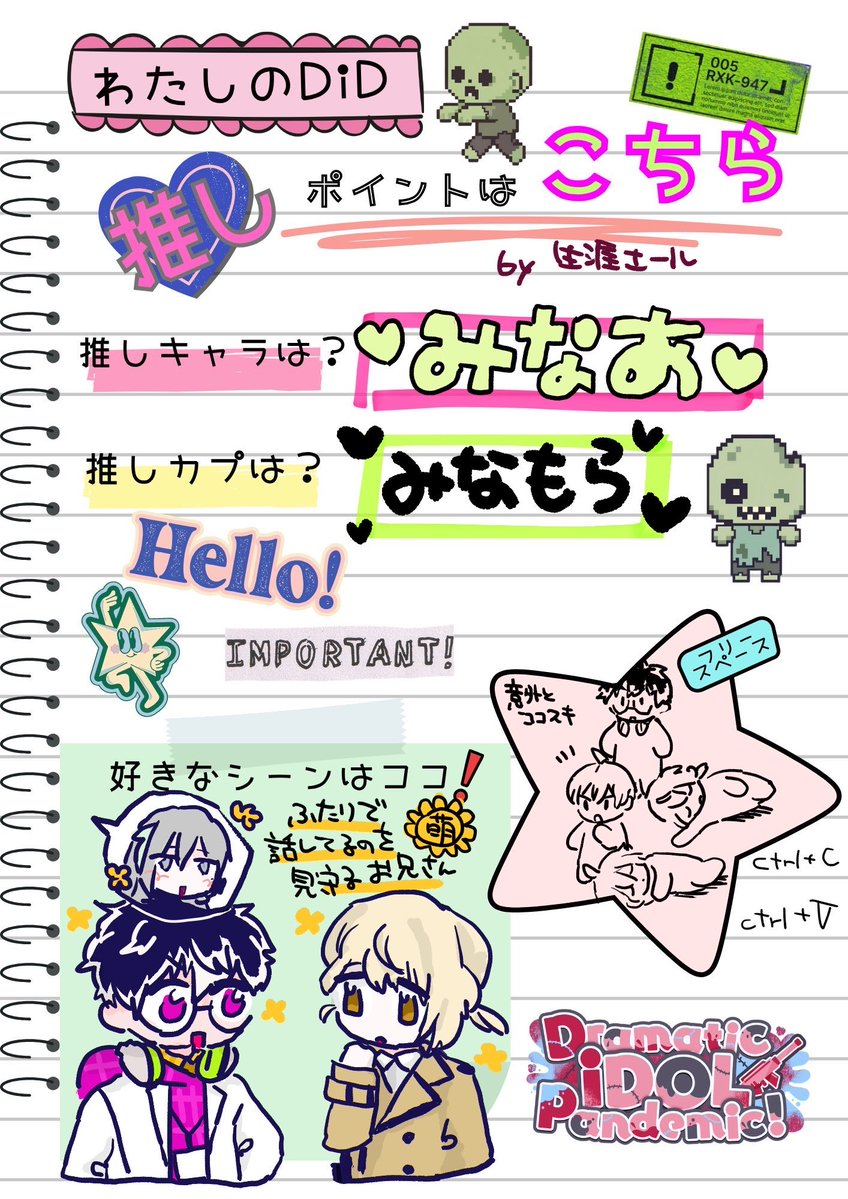 わたしのDiD
005
RXK-947
推し
ポイントは
こちら
by 生涯さール
推しキャラは?
みなあ
推しカプは?
みなもら
Hello!
IMPORTANT!
フリー
スペース
意外と
ココスキ
好きなシーンはココ!
ふたりで
話してるのを
見守るお兄さん
萌
ctrl+C
ctrl+V
Dramatic
iDOL
Pandemic!